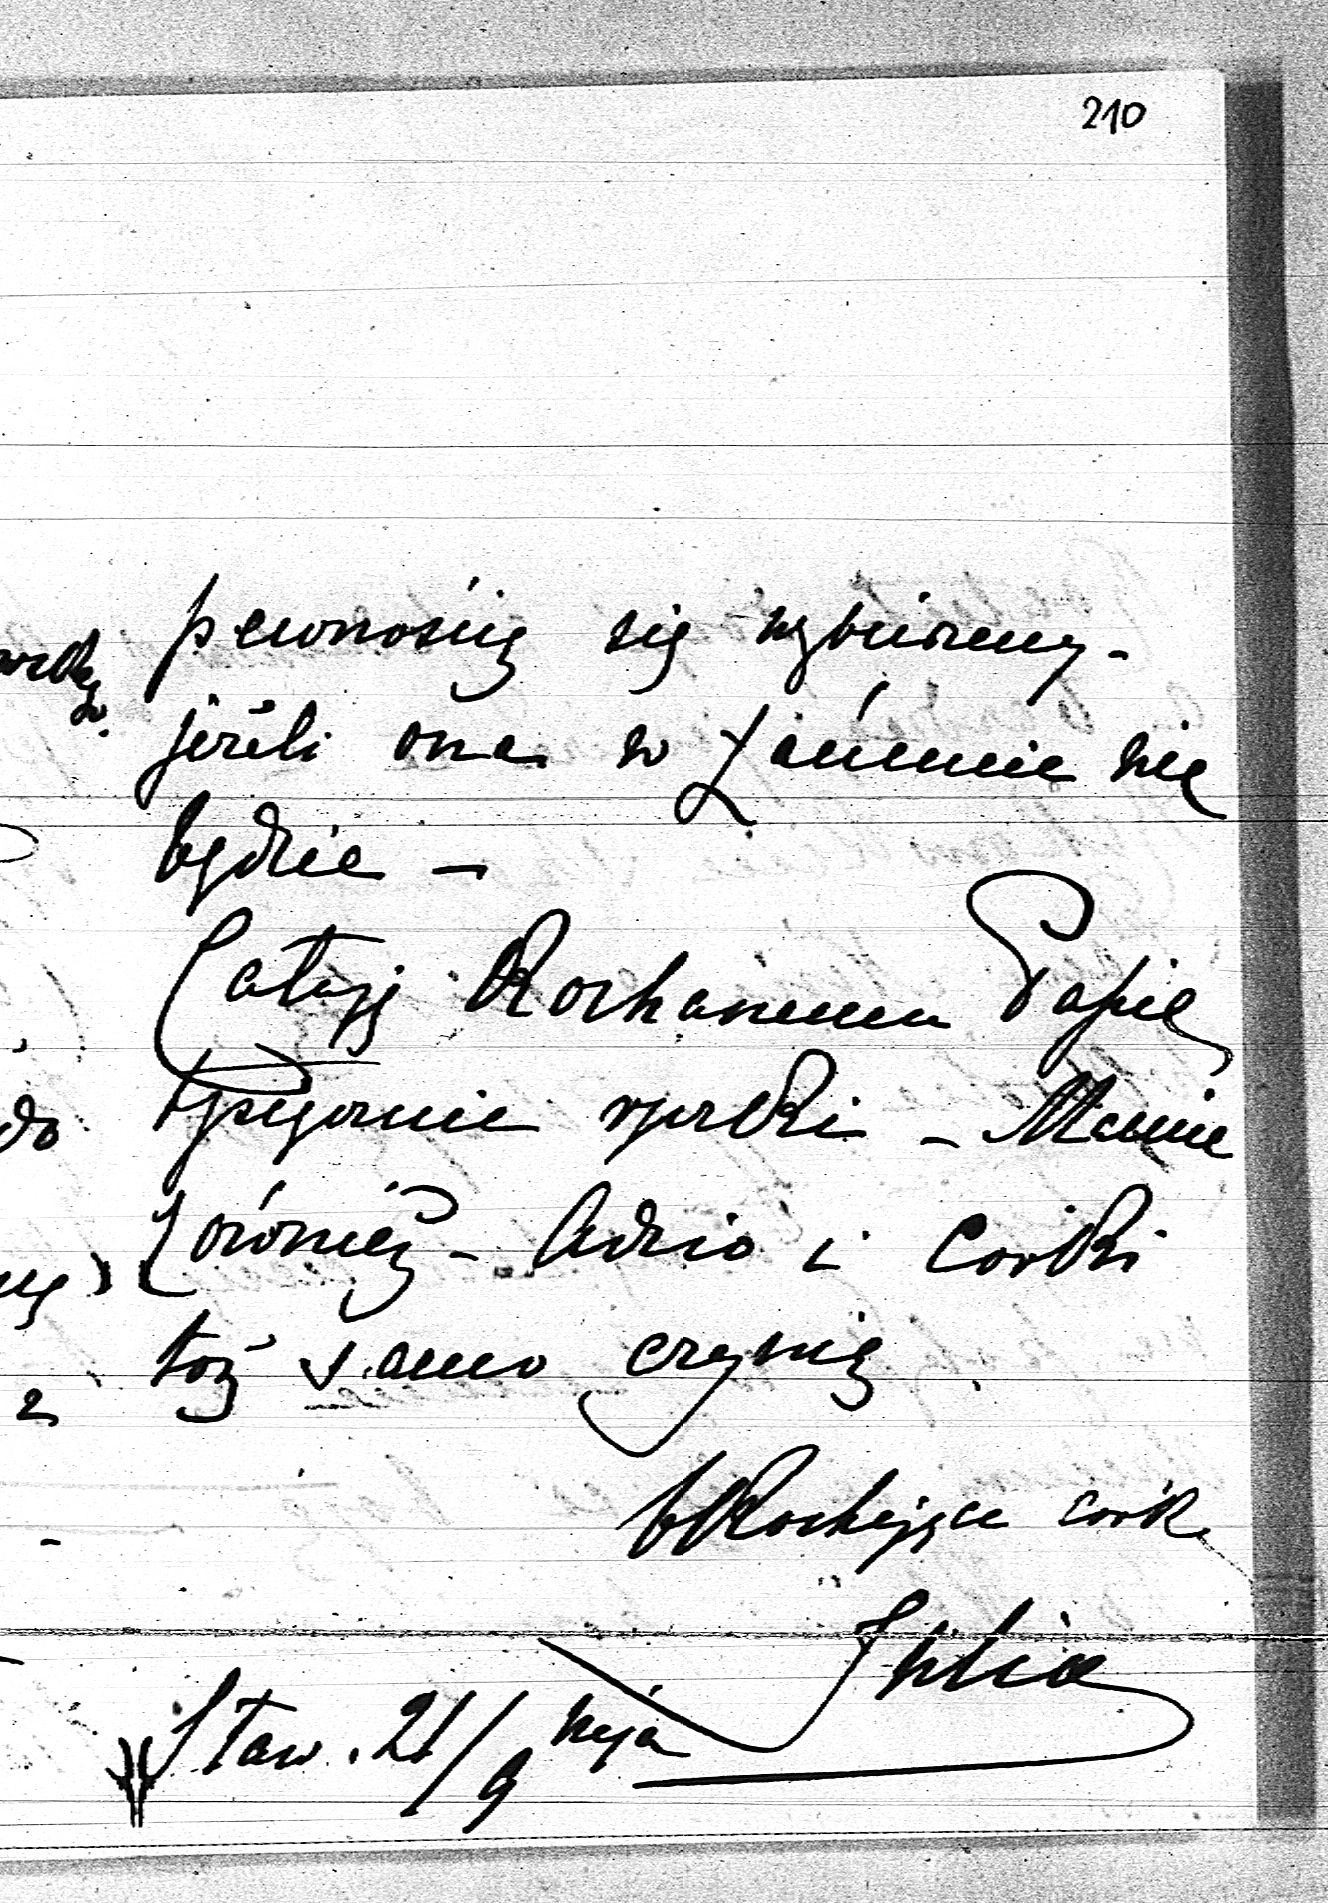 210
pewnością się wybieramy -
jeżeli ona w Łańcucie nie
będzie -
Całuję Kochanemu Papie
tysięcznie rączki - Mamie
również - Adzio i Córki
toż samo czynią
Kochająca córka
Julia
Staw. 21/9
do